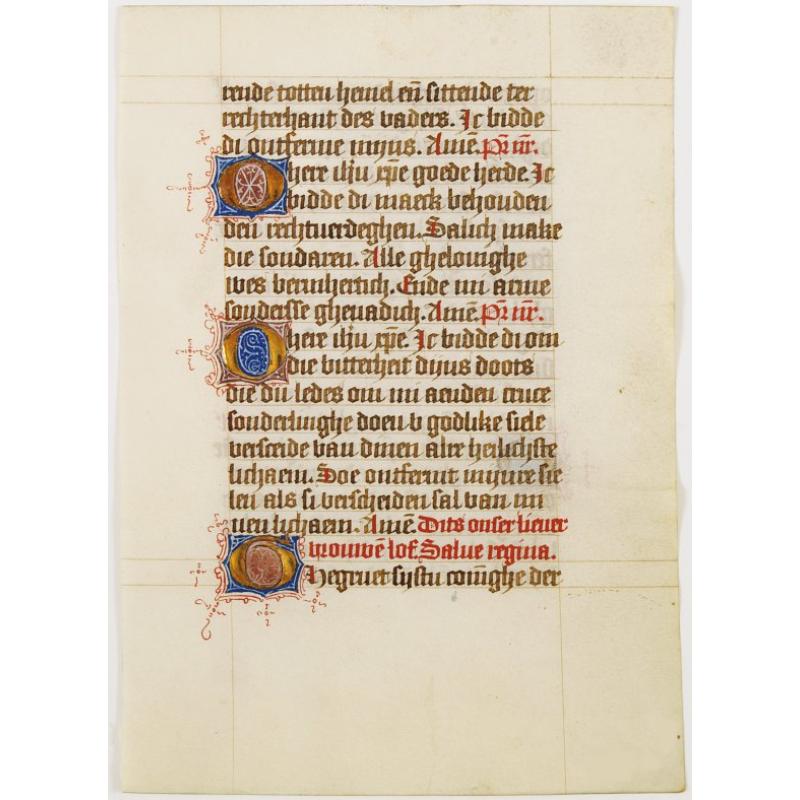 rende totten hemel eñ sittende ter
rechterhant des vaders. Ic bidde
di ontferme mijns. Amē. Pr̄ nr̄.
O here ihū xp̄e goede herde. Ic
bidde di maeck behouden
den rechtuerdeghen. Salich make
die sondaren. Alle ghelouighe
wes bermhertich. Ende mi arme
sondersse ghenadich. Amē. Pr̄ nr̄.
O here ihū xp̄e. Ic bidde di om
die bitterheit dijns doots
die du ledes om mi aenden cruce
sonderlinghe doen v godlike siele
versceide van dinen alre heilichste
lichaem. Soe ontfermt mijnre sie
len als si verscheiden sal van mi
nen lichaem. Amē. Dits onser lieuer
vrouwē lof. Salue regina.
Ghegruet sijstu conīghe der